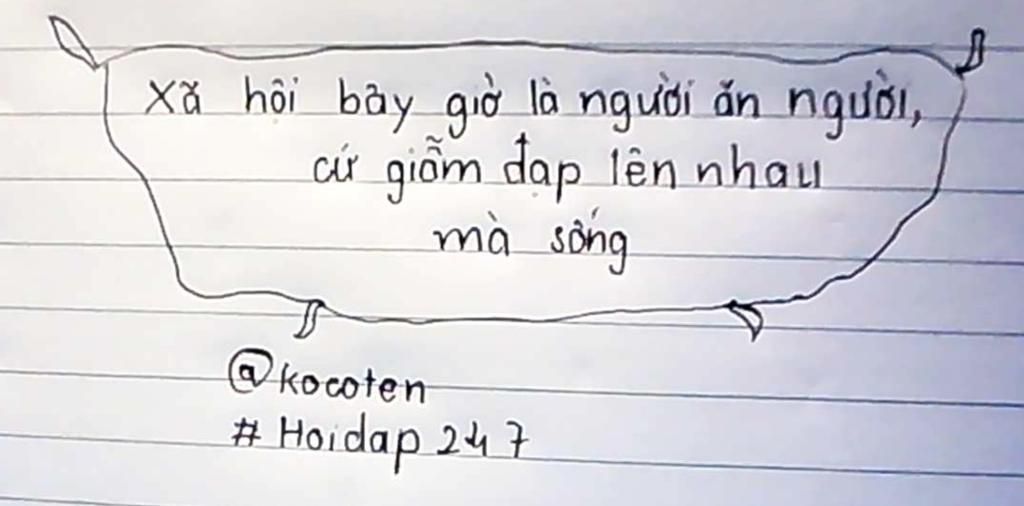 Xã hội bây giờ là người ăn người,
cứ giẫm đạp lên nhau
mà sống
@kocoten
# Hoidap 247